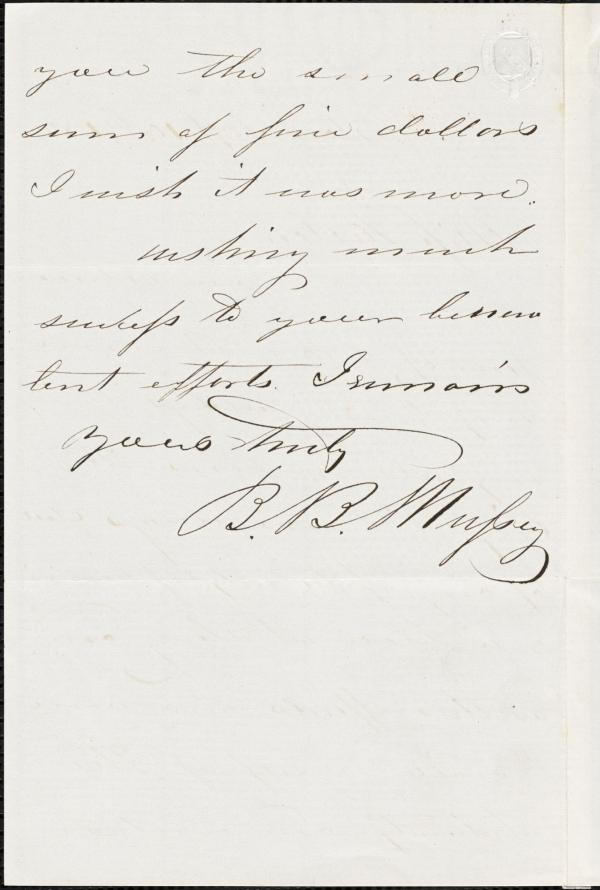 you the small
sum of five dollars
I wish it was more.
wishing much
success to your benevo
lent efforts. I remain
yours truly
B. B. Mussey